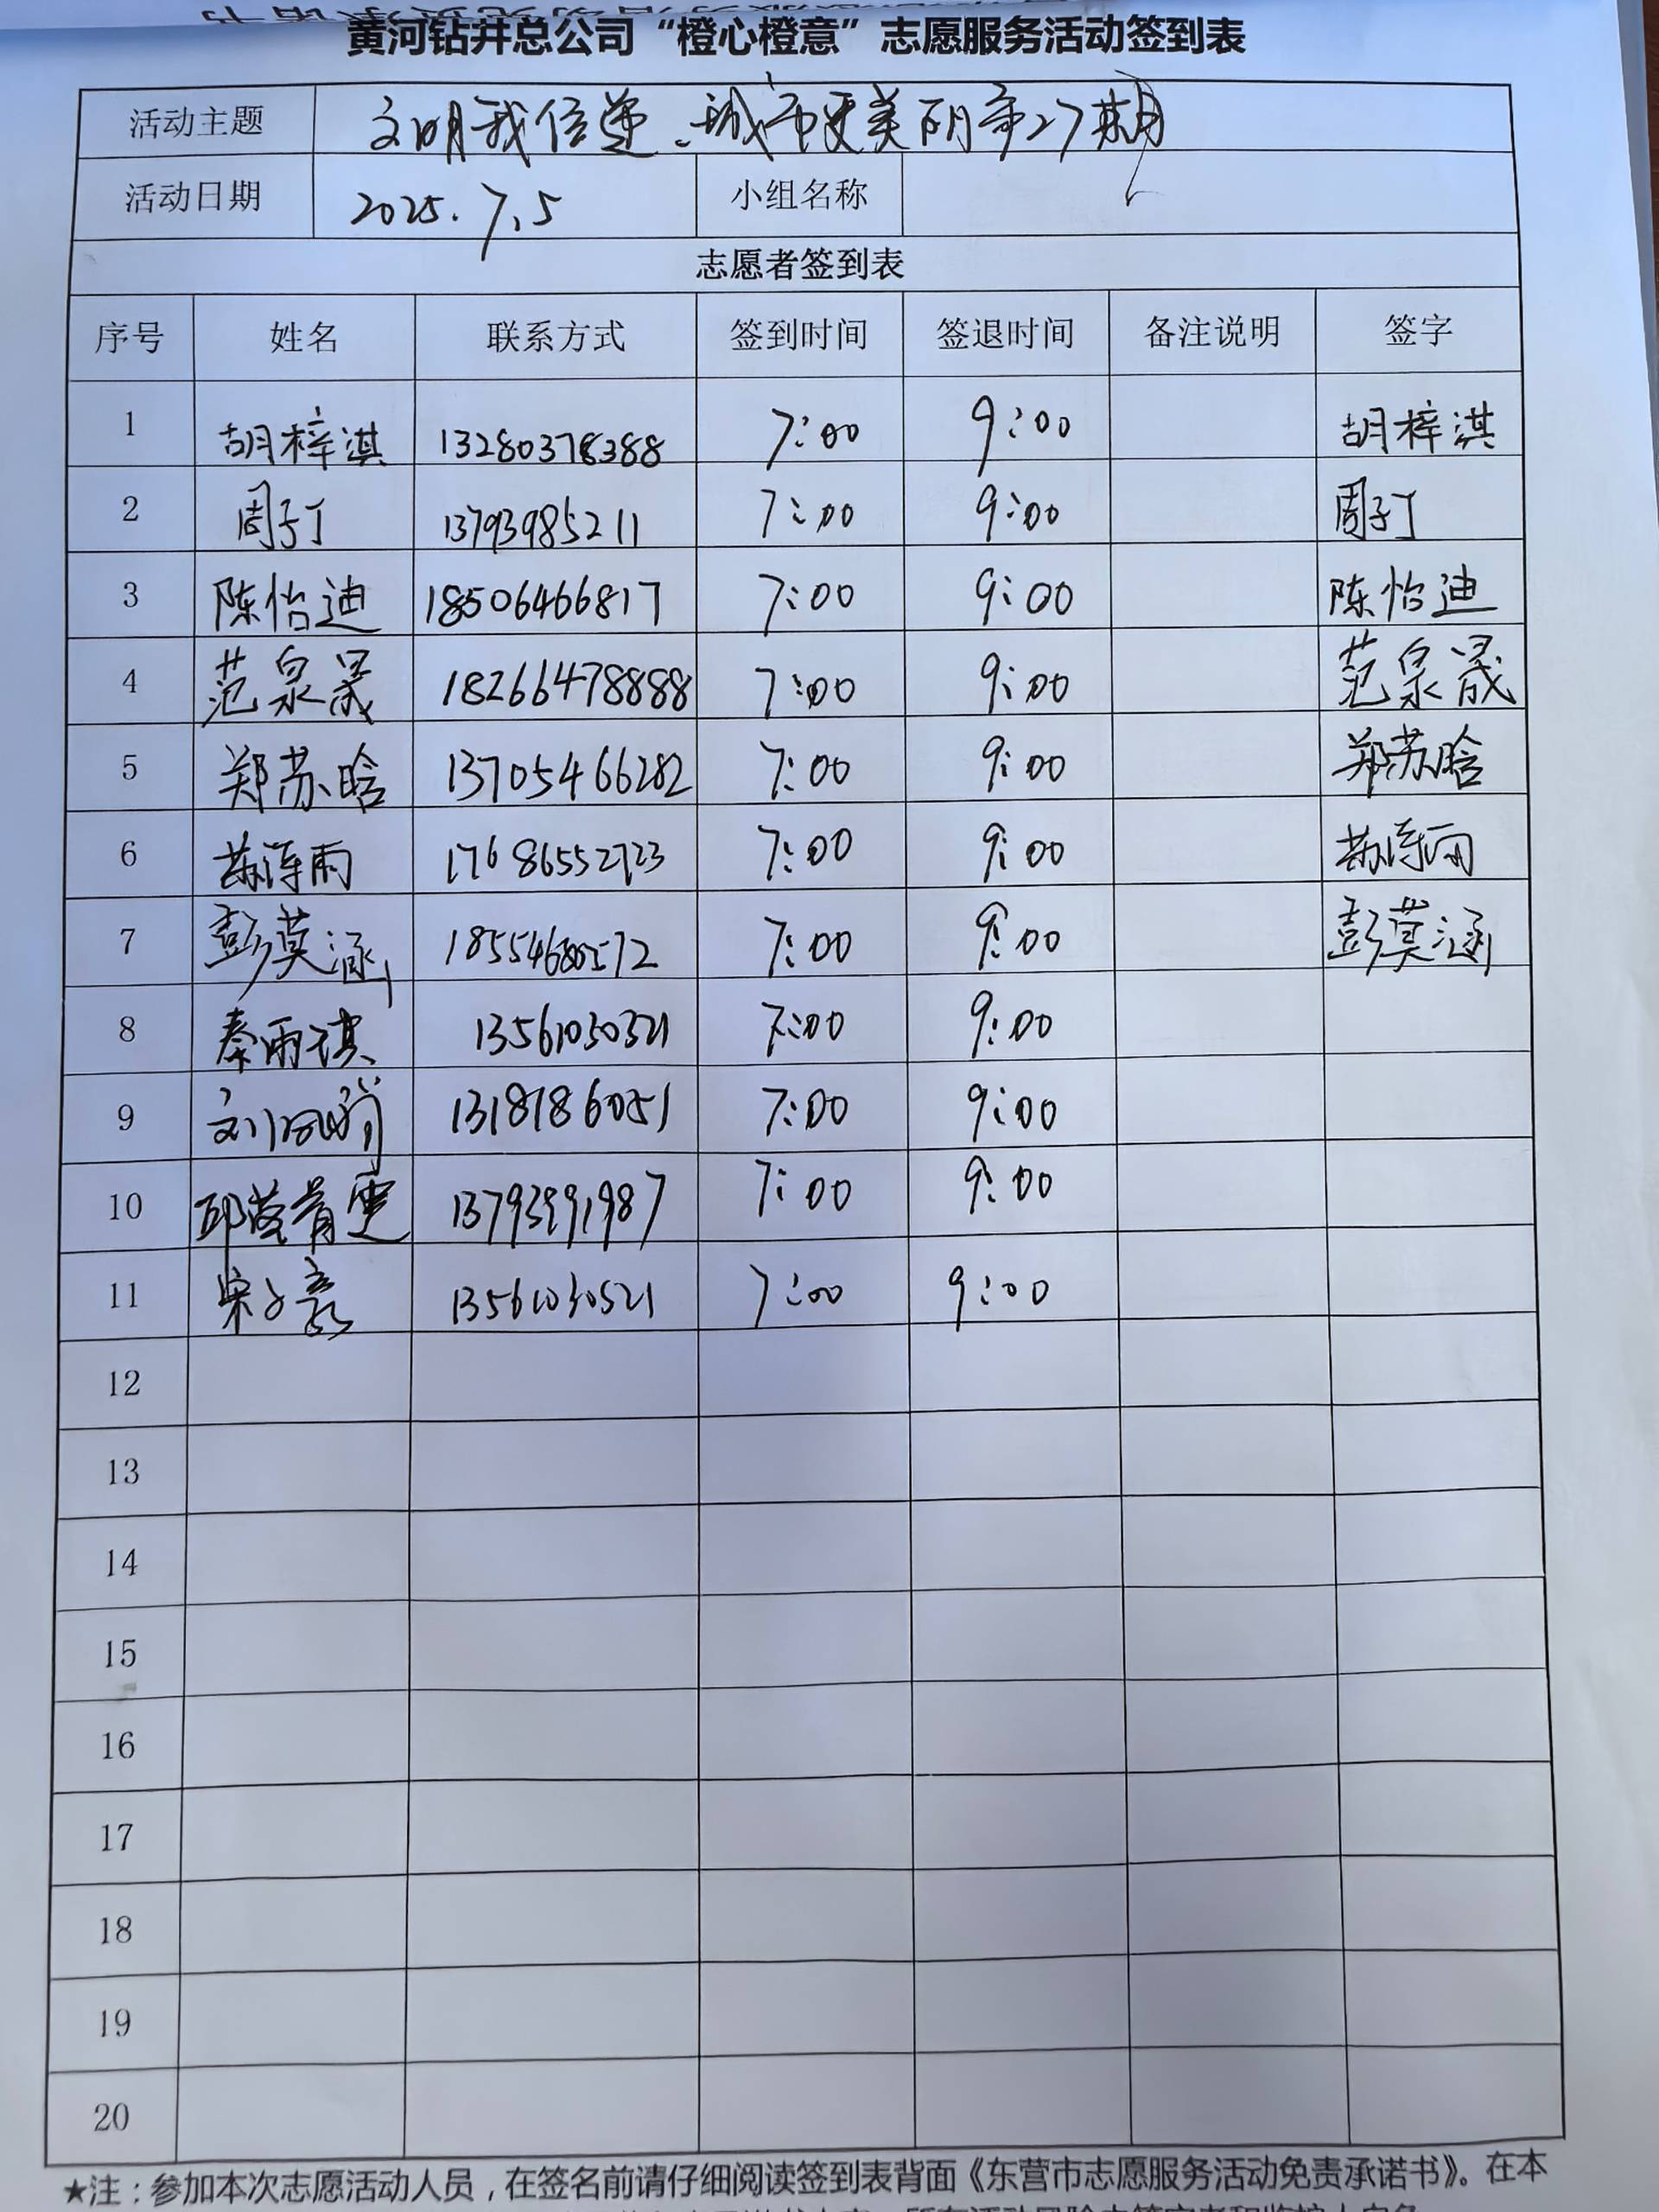 黄河钻井总公司“橙心橙意”志愿服务活动签到表
活动主题 文明我传递、城市更美丽第27期
活动日期 2025.7.5 小组名称
志愿者签到表
序号 姓名 联系方式 签到时间 签退时间 备注说明 签字
1 胡梓淇 13280378388 7:00 9:00 胡梓淇
2 周子丁 13793985211 7:00 9:00 周子丁
3 陈怡迪 18506466817 7:00 9:00 陈怡迪
4 范泉晟 18266478888 7:00 9:00 范泉晟
5 郑苏晗 13705466282 7:00 9:00 郑苏晗
6 雨 17686552723 7:00 9:00 雨
7 彭莫涵 7:00 9:00 彭莫涵
8 秦雨琪 13561030321 7:00 9:00
9 刘 13181860251 7:00 9:00
10 邱 雯 13793991987 7:00 9:00
11 宋 13561030521 7:00 9:00
12
13
14
15
16
17
18
19
20
★注:参加本次志愿活动人员,在签名前请仔细阅读签到表背面《东营市志愿服务活动免责承诺书》。在本